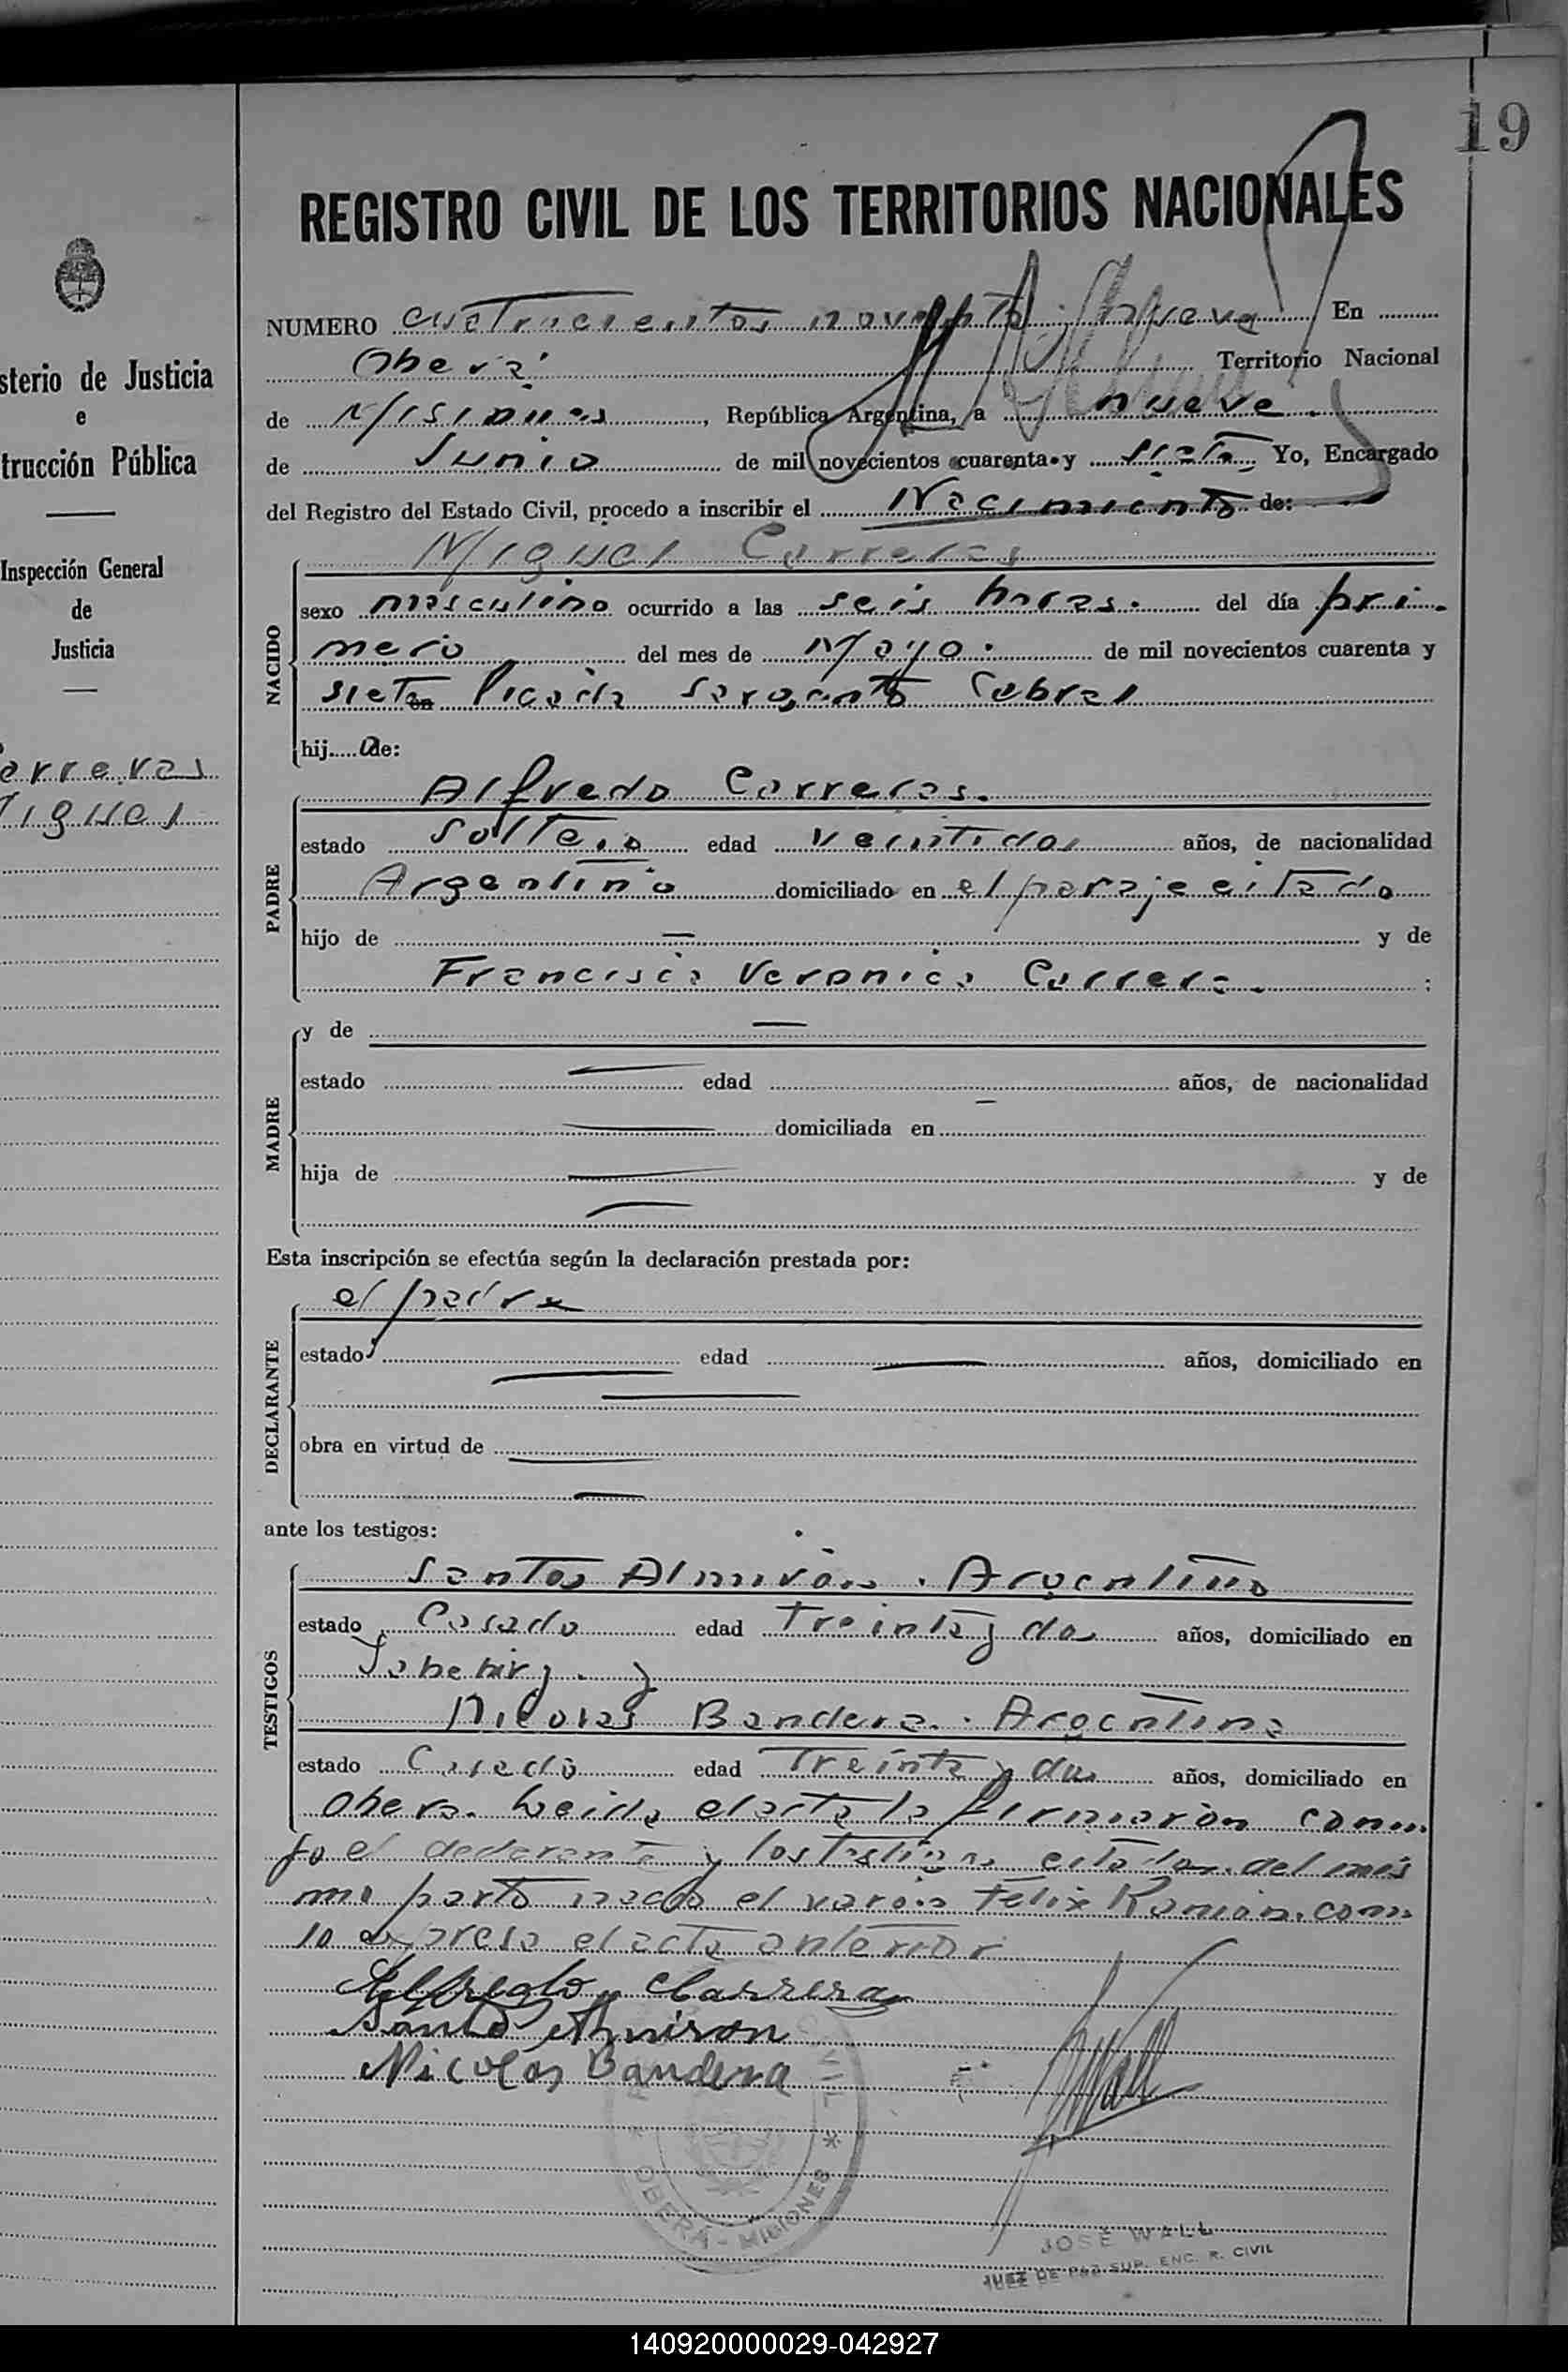 19
REGISTRO CIVIL DE LOS TERRITORIOS NACIONALES
sterio de Justicia
e
trucción Pública
Inspección General
de
Justicia
arreras
iguel
NUMERO cuatrocientos noventa y nueve En
Oberá Territorio Nacional
de Misiones, República Argentina, a nueve
de Junio de mil novecientos cuarenta y siete Yo, Encargado
del Registro del Estado Civil, procedo a inscribir el Nacimiento de:
NACIDO
Miguel Carreras
sexo masculino ocurrido a las seis horas. del día pri-
mero del mes de Mayo. de mil novecientos cuarenta y
siete en Picada Sargento Cabral
hij o de:
PADRE
Alfredo Carreras.
estado soltero edad veintidos años, de nacionalidad
Argentino domiciliado en el paraje citado
hijo de — y de
Francisca Veronica Carrera. ;
MADRE
y de —
estado — edad — años, de nacionalidad
— domiciliada en
hija de — y de
—
Esta inscripción se efectúa según la declaración prestada por:
DECLARANTE
el padre
estado — edad — años, domiciliado en
—
obra en virtud de —
—
ante los testigos:
TESTIGOS
Santos Almirón. Argentino
estado Casado edad Treinta y dos años, domiciliado en
y
Nicolas Bandera. Argentino
estado Casado edad Treinta y dos años, domiciliado en
Obera. Leida el acta la firmaron conmi
go el declarante y los testigos citados. del mis
mo parto nacio el varón Felix Ramón. como
lo expresa el acta anterior
Alfredo Carrera
Santo Almiron
Nicolas Bandera
Wall
CIVIL
* OBERÁ - MISIONES *
JOSÉ WALL
JUEZ DE PAZ SUP. ENC. R. CIVIL
140920000029-042927